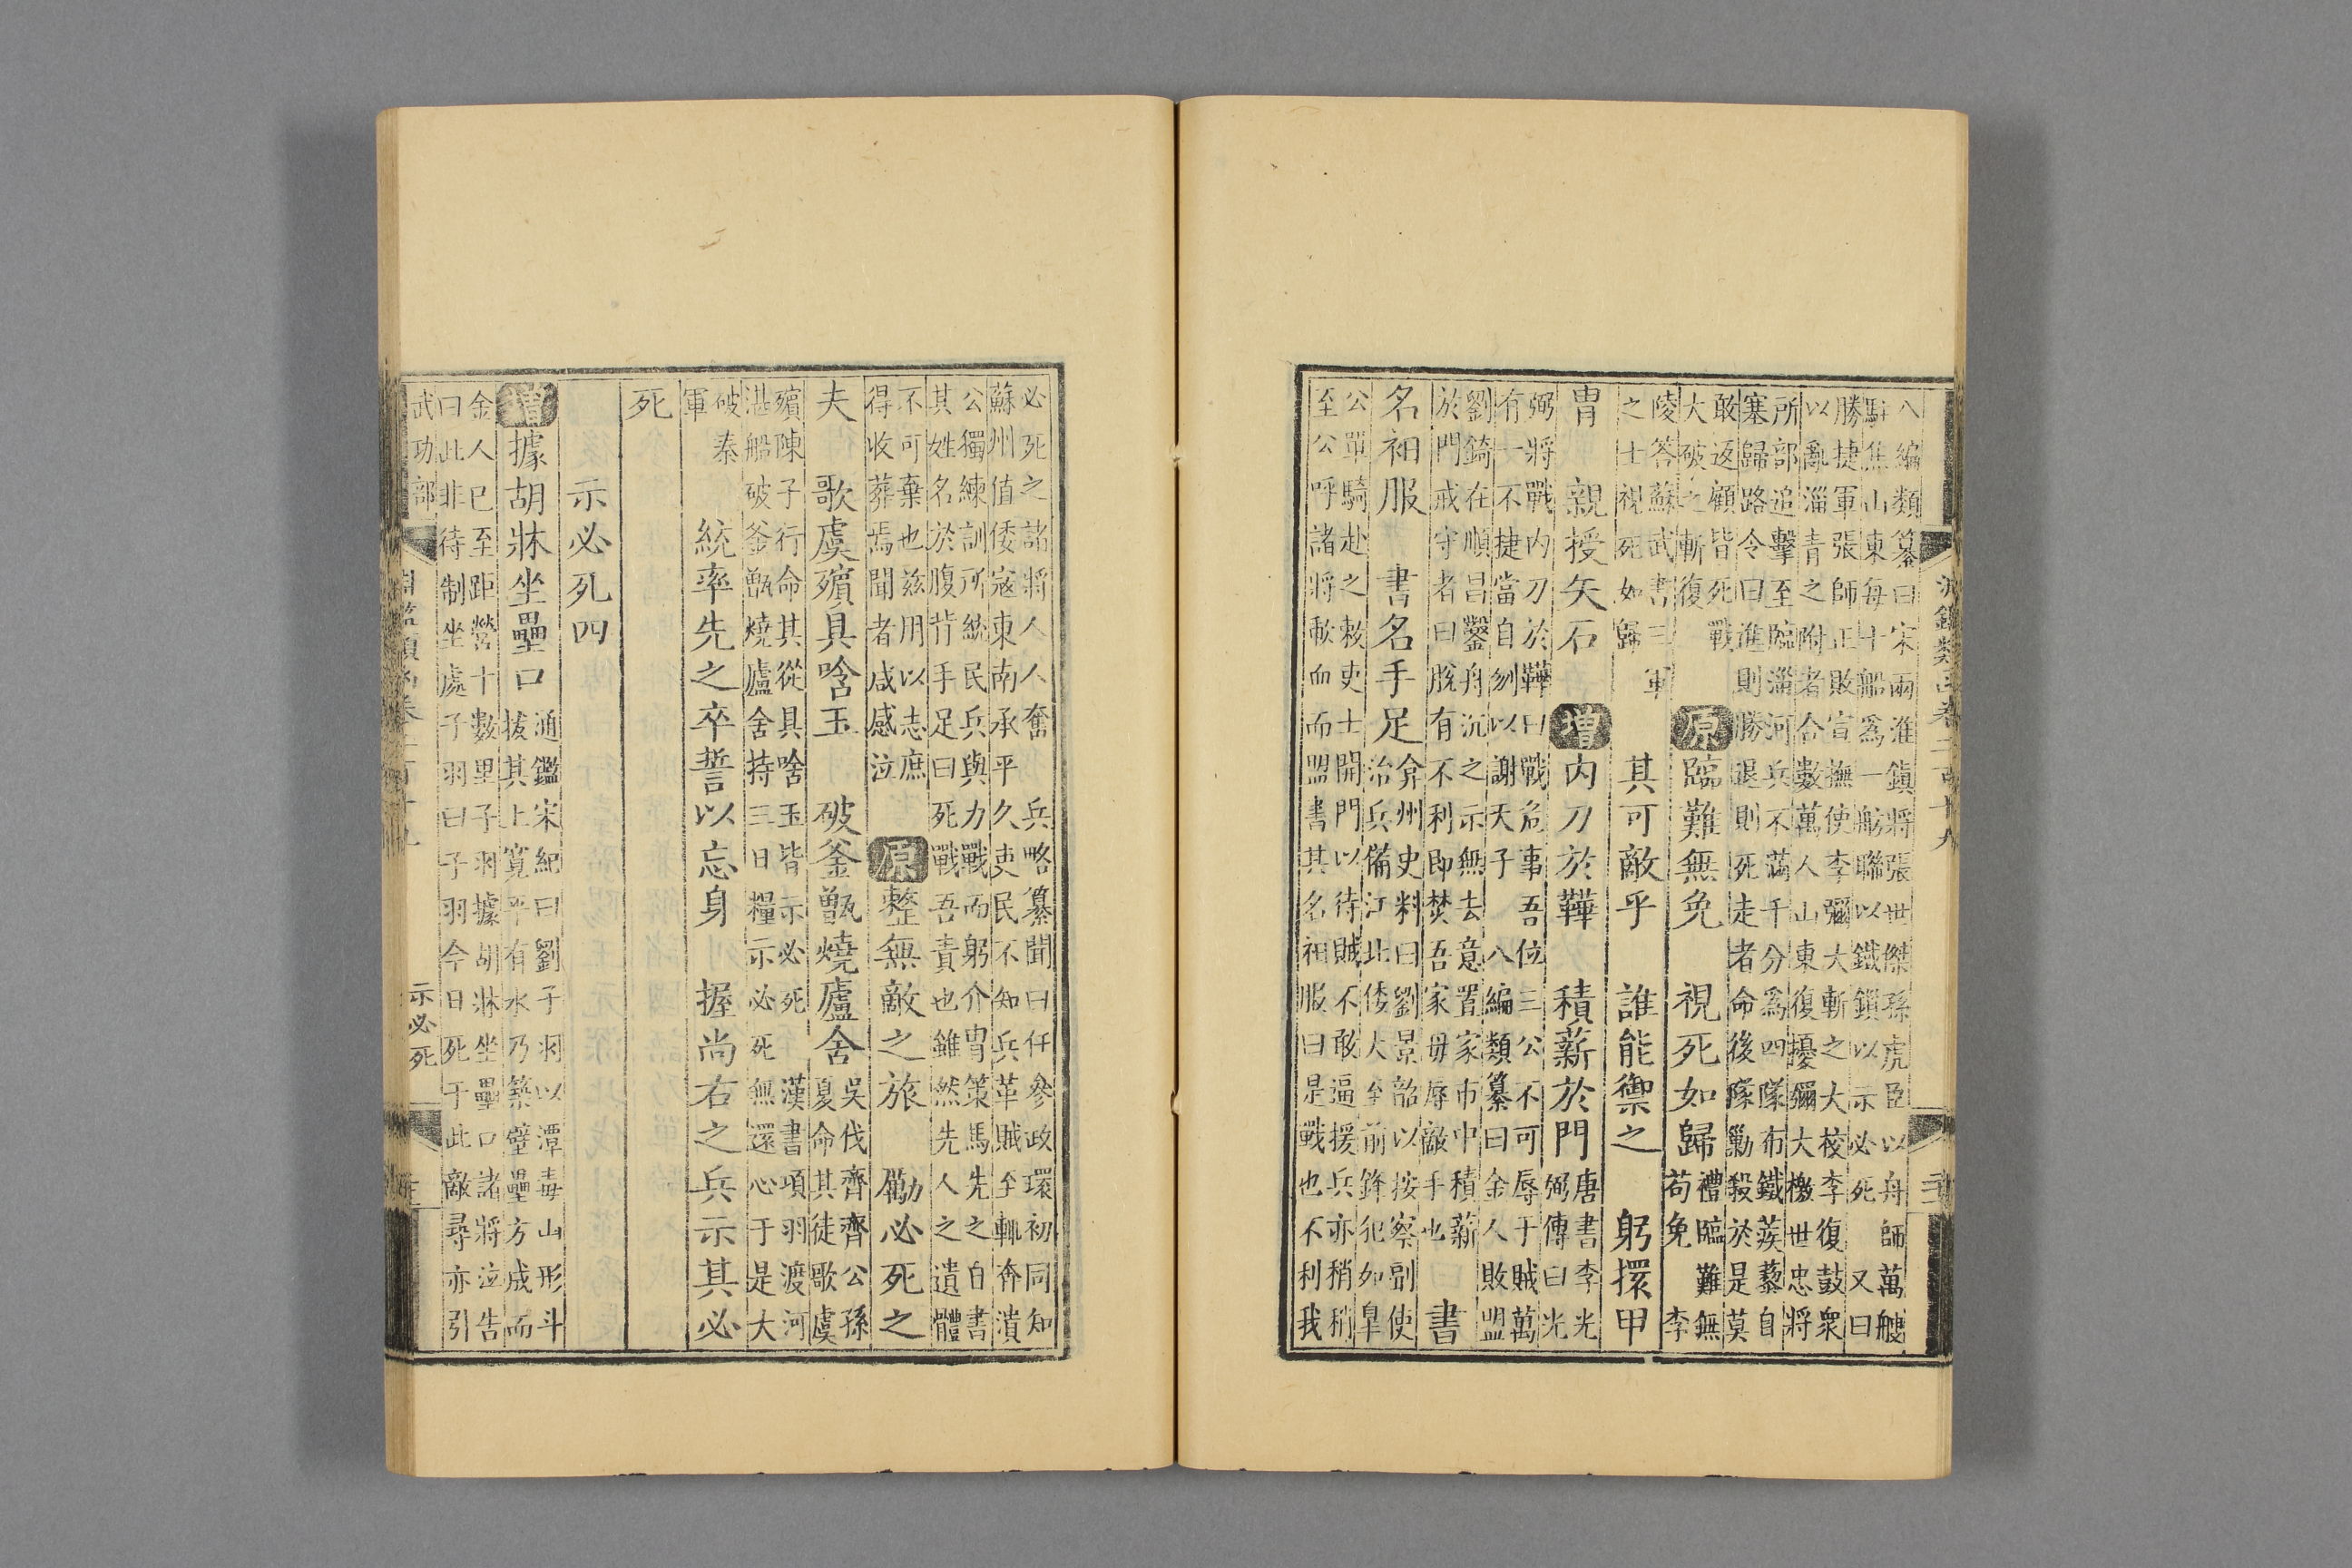 八編類纂曰宋兩淮鎮將張世傑孫虎臣以舟師萬艘
駐焦山東每十船爲一舫聯以鐵鎖以示必死 又曰
勝捷軍張師正敗宣撫使李彌大斬之大校李復鼓衆
以亂淄青之附者合數萬人山東復擾彌大檄世忠將
所部追擊至臨淄河兵不滿千分爲四隊布鐵蒺藜自
塞歸路令曰進則勝退則死走者命後隊勦殺於是莫
敢返顧皆死戰
大破之斬復
原臨難無免 視死如歸
禮臨難無
苟免 李
陵答蘇武書三軍
之士視死如歸
其可敵乎 誰能禦之 躬擐甲
胄 親授矢石 增内刀於鞾 積薪於門
唐書李光
弼傳曰光
弼將戰内刀於鞾曰戰危事吾位三公不可辱于賊萬
有一不捷當自刎以謝天子 八編類纂曰金人敗盟
劉錡在順昌鑿舟沉之示無去意置家市中積薪
於門戒守者曰脫有不利即焚吾家毋辱敵手也
書
名衵服 書名手足
弇州史料曰劉景韶以按察副使
治兵備江北倭大至前鋒犯如臯
公單騎赴之敕吏士開門以待賊不敢逼援兵亦稍稍
至公呼諸將歃血而盟書其名衵服曰是戰也不利我
必死之諸將人人奮 兵略纂聞曰任參政環初同知
蘇州值倭寇東南承平久吏民不知兵革賊至輒奔潰
公獨練訓所統民兵與力戰而躬介胄策馬先之自書
其姓名於腹背手足曰死戰吾責也雖然先人之遺體
不可棄也兹用以志庶
得收葬焉聞者咸感泣
原整無敵之旅 勵必死之
夫 歌虞殯具唅玉 破釜甑燒廬舍
吳伐齊齊公孫
夏命其徒歌虞
殯陳子行命其從具唅玉皆示必死 漢書項羽渡河
湛船破釜甑燒廬舍持三日糧示必死無還心于是大
破秦
軍
統率先之卒誓以忘身 握尚右之兵示其必
死
示必死四
增據胡牀坐壘口
通鑑宋紀曰劉子羽以潭毒山形斗
拔其上寛平有水乃築壁壘方成而
金人已至距營十數里子羽據胡牀坐壘口諸將泣告
曰此非待制坐處子羽曰子羽今日死于此敵尋亦引
武功部
示必死